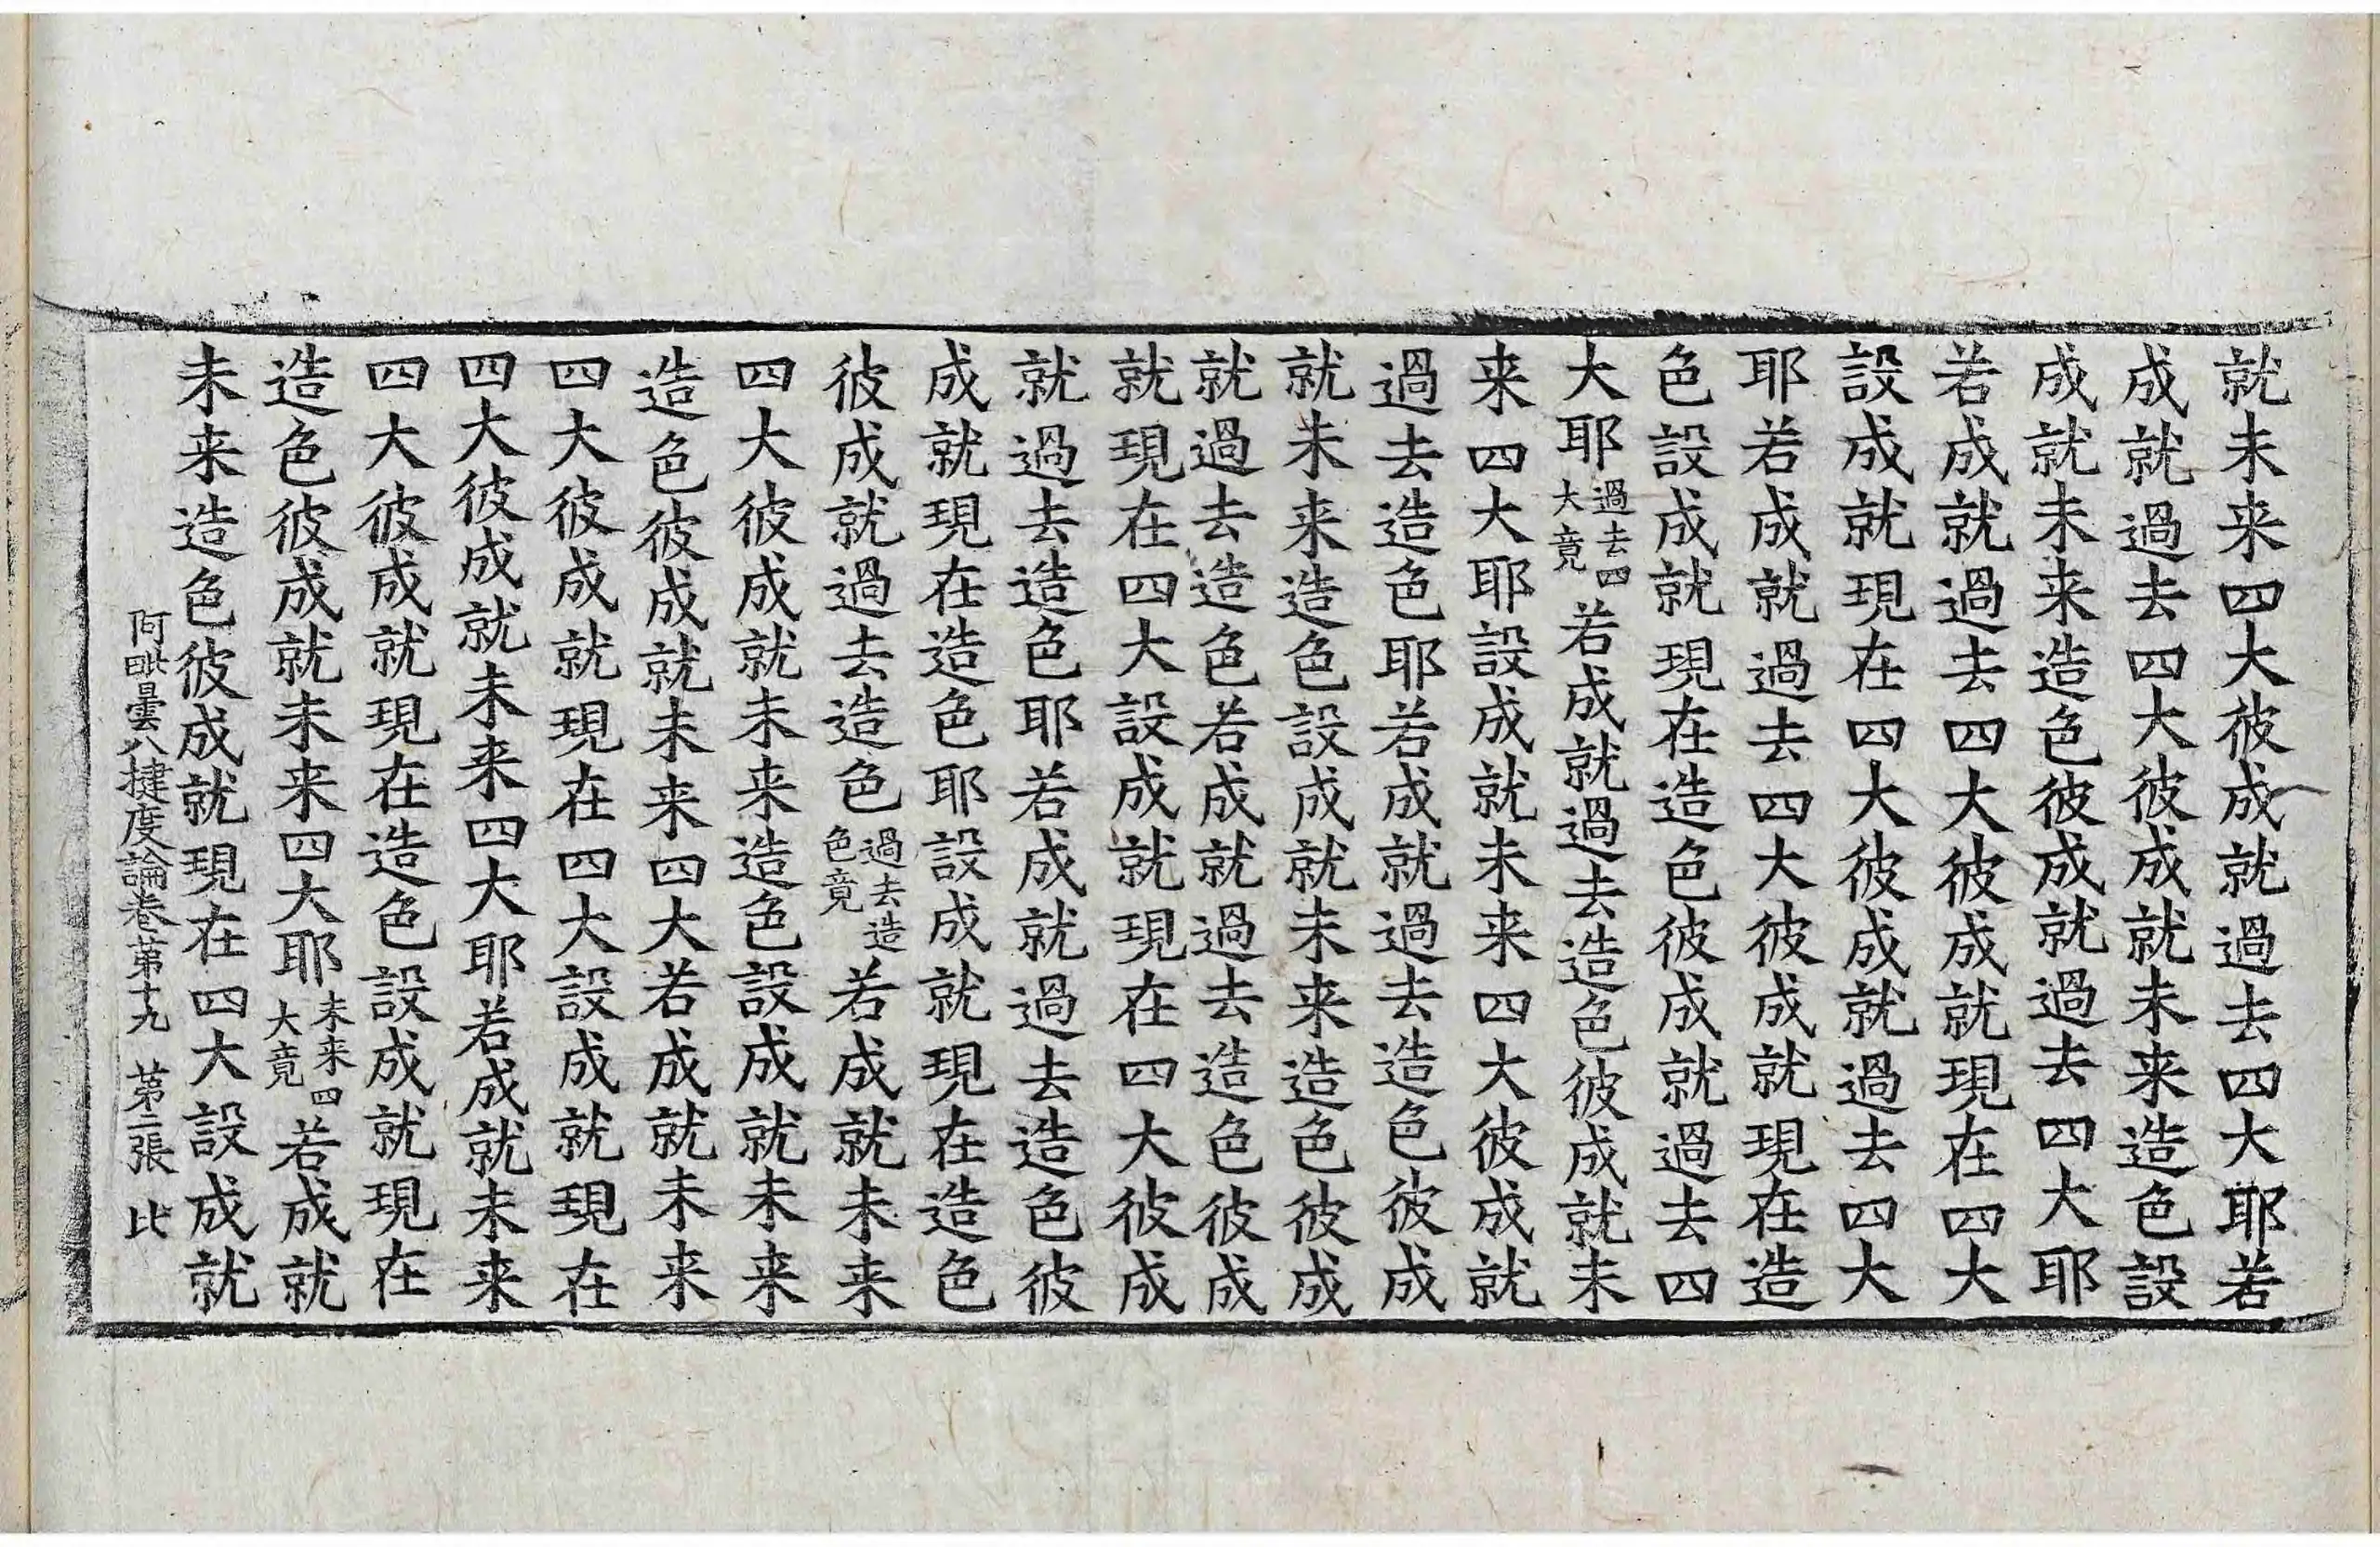 就未来四大彼成就過去四大耶若
成就過去四大彼成就未来造色設
成就未来造色彼成就過去四大耶
若成就過去四大彼成就現在四大
設成就現在四大彼成就過去四大
耶若成就過去四大彼成就現在造
色設成就現在造色彼成就過去四
大耶過去四大竟若成就過去造色彼成就未
来四大耶設成就未来四大彼成就
過去造色耶若成就過去造色彼成
就未来造色設成就未来造色彼成
就過去造色若成就過去造色彼成
就現在四大設成就現在四大彼成
就過去造色耶若成就過去造色彼
成就現在造色耶設成就現在造色
彼成就過去造色過去造色竟若成就未来
四大彼成就未来造色設成就未来
造色彼成就未来四大若成就未来
四大彼成就現在四大設成就現在
四大彼成就未来四大耶若成就未来
四大彼成就現在造色設成就現在
造色彼成就未来四大耶未来四大竟若成就
未来造色彼成就現在四大設成就
阿毗曇八揵度論卷第十九 第二張 比